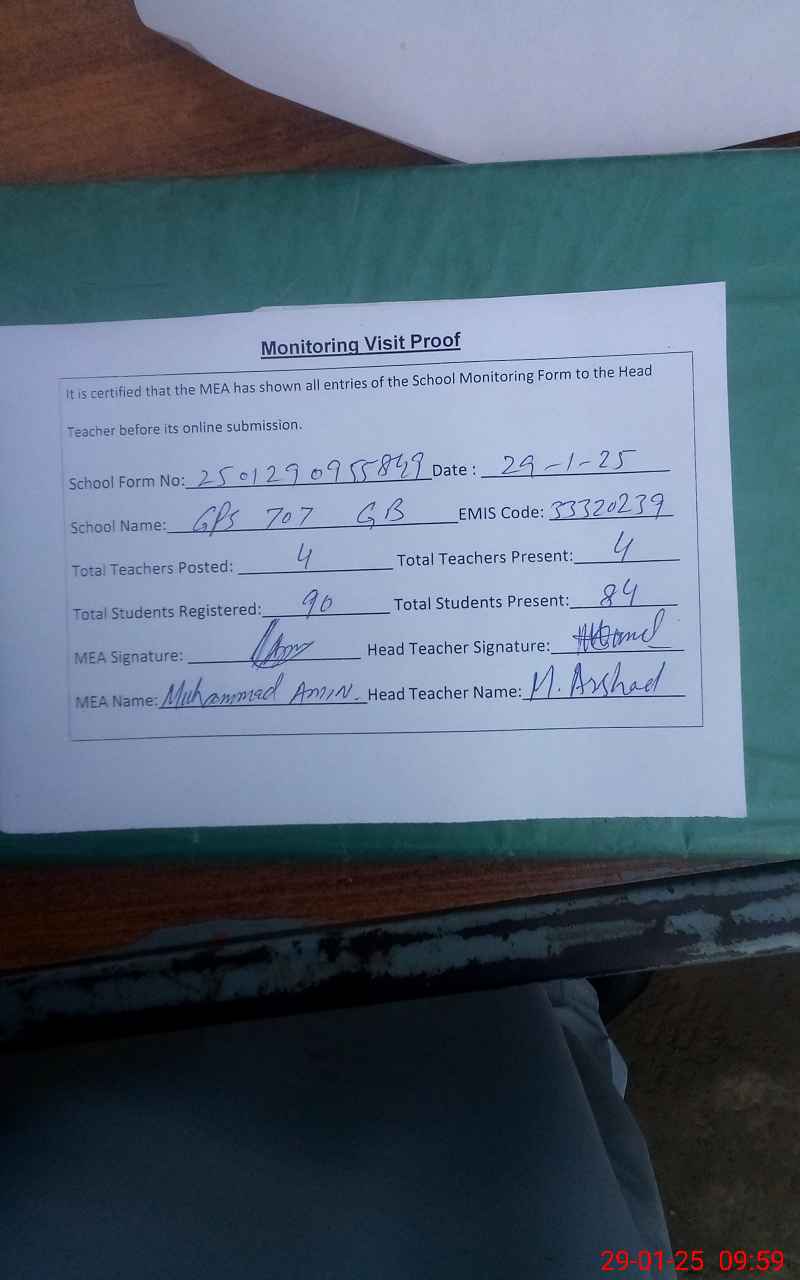 Monitoring Visit Proof
It is certified that the MEA has shown all entries of the School Monitoring Form to the Head
Teacher before its online submission.
School Form No: 250129095849 Date : 29-1-25
School Name: GPS 707 GB EMIS Code: 33320239
Total Teachers Posted: 4 Total Teachers Present: 4
Total Students Registered: 90 Total Students Present: 84
MEA Signature: Head Teacher Signature:
MEA Name: Muhammad Amin. Head Teacher Name: M. Arshad
29-01-25 09:59